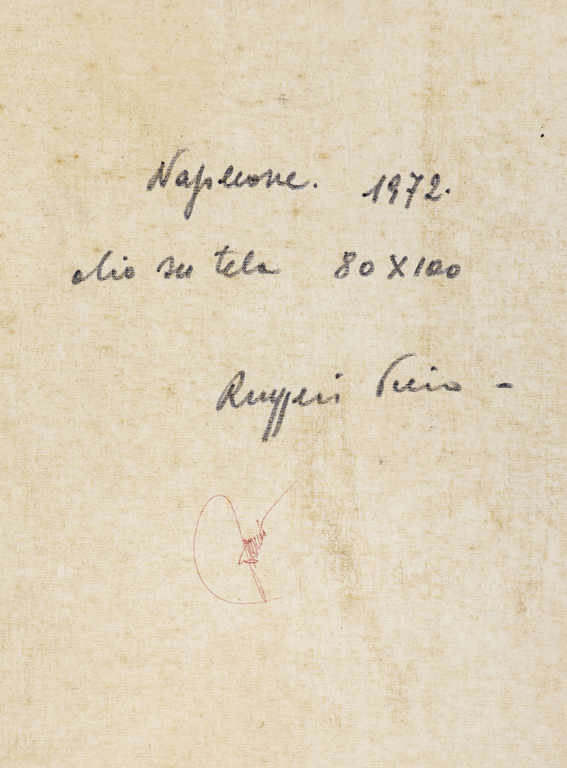 Napleone. 1972.
olio su tela 80 X 100
Ruggeri Piero -